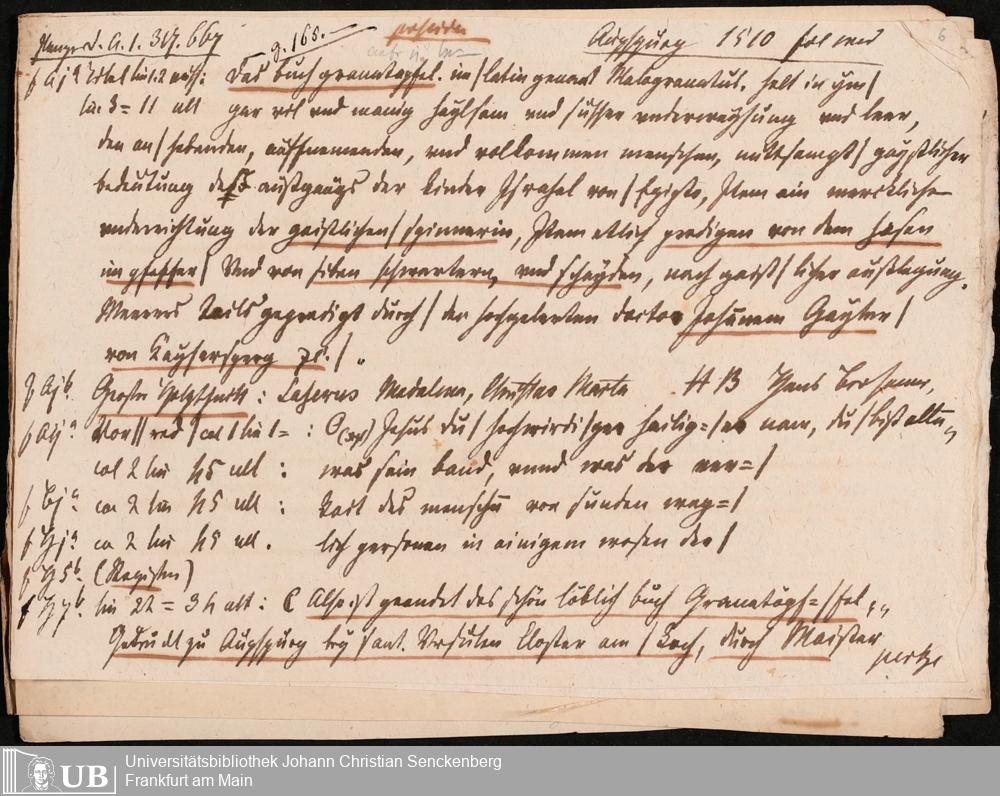 Panzer d. A. 1. 317. 667 g. 165. Augspurg 1510 fol
f Aj a Titel lin. 1-2 roth: Das buch granatapfel. im / latin genant Malogranatus. helt in ym /
lin. 3 = 11 alt gar vil und manig haylsam und susser underweysung und leer,
den an / hebenden, auffnemenden, und volkommen menschen, mitsampt / gaystlicher
bedeutung deß außgangs der kinder Israhel von / Egipto, Item ain merckliche
underrichtung der gaistlichen / spinnerin, Item etlich predigen von dem hasen
im pfeffer / Und von siben schwertern, und schayden, nach gaist / licher außlegung.
Meerers tails gepredigt durch / den hochgelerten doctor Johannem Gayler /
von Kaysersperg zc. /
f Aj b. Grosser Holzschnitt: Lazerus Madalena, Christus Marta H B Hans
f Aij a Vor // red / col 1 lin 1 = : O Jesus du / hochwirdi / ger hailig = / er nam, du / bist
col 2 lin 45 alt : was sein band, unnd was der ver= /
f Bj a co 2 lin 45 alt : kait des menschen von sunden weg= /
co 2 lin 45 alt. lich personen in ainigem wesen der /
5 b. (Register)
lin 22 = 34 alt : C Also ist geendet das schön löblich buch Granatöpf= / fel,
Gedruckt zu Augspurg bey / sant. Ursulen closter am / Lech, durch Maister